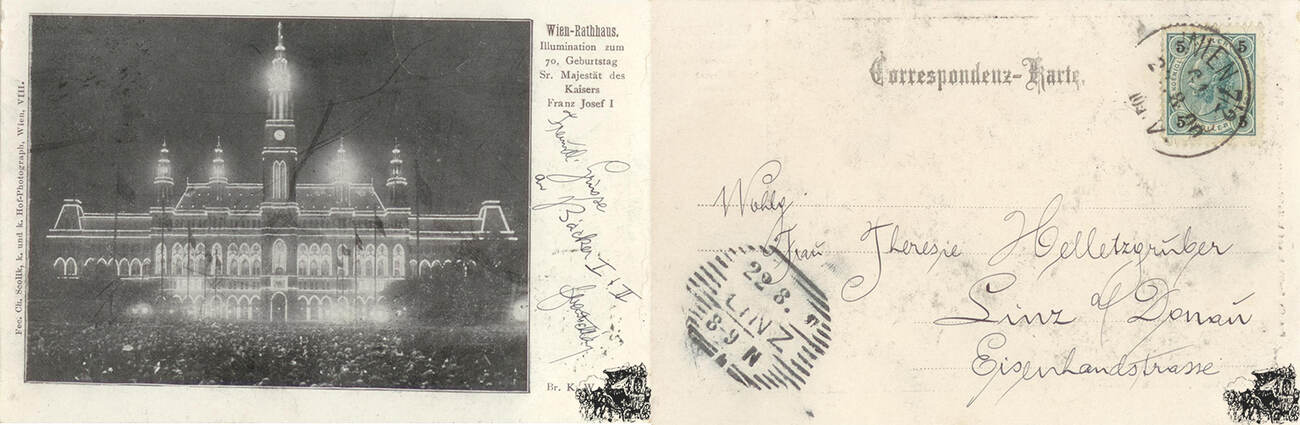 Wien-Rathhaus.
Illumination zum
70. Geburtstag
Sr. Majestät des
Kaisers
Franz Josef I
Freundl. Grüsse
an Bäcker I, II
Br. K. W.
Fec. Ch. Scolik, k. und k. Hof-Photograph, Wien, VIII.
Correspondenz-Karte.
5 5
5 5
WIEN
Wohlg
Frau Theresie Helletzgruber
Linz a/ Donau
Eisenhandstrasse
22.8.
LINZ
8-9 N